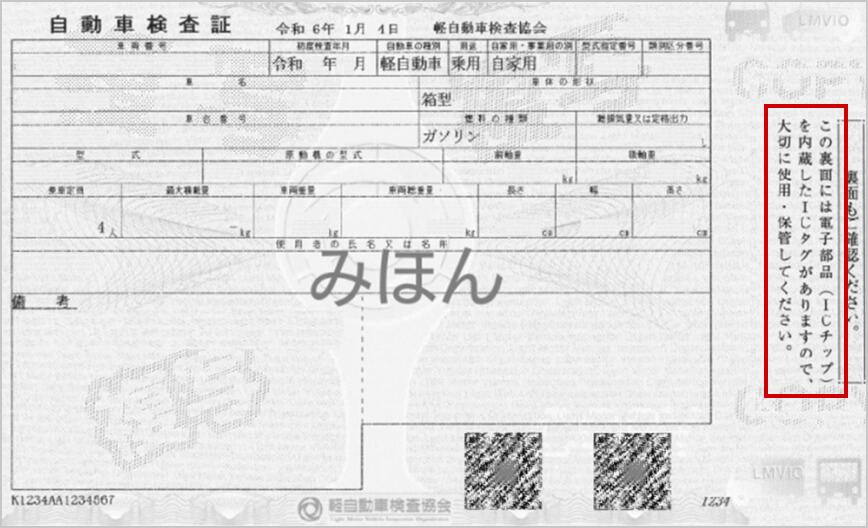 自動車検査証
令和 6年 1月 4日
軽自動車検査協会
車両番号
初度検査年月
自動車の種別
用途
自家用・事業用の別
型式指定番号
類別区分番号
令和 年 月
軽自動車
乗用
自家用
車名
車体の形状
箱型
車台番号
燃料の種類
総排気量又は定格出力
ガソリン
L
型式
原動機の型式
前軸重
後軸重
kg
kg
乗車定員
最大積載量
車両重量
車両総重量
長さ
幅
高さ
4人
-kg
kg
kg
cm
cm
cm
使用者の氏名又は名称
みほん
備考
この裏面には電子部品(ICチップ)
を内蔵したICタグがありますので、
大切に使用・保管してください。
裏面もご確認ください。
LMVIO
LMVIO
K1234AA1234567
軽自動車検査協会
Light Motor Vehicle Inspection Organization
1234